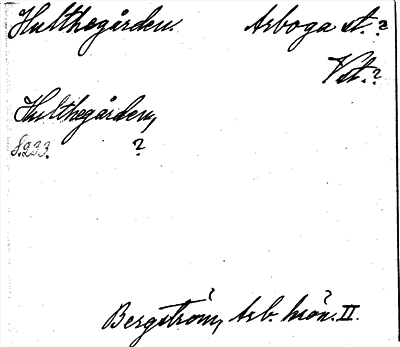 Hulthegården. Arboga st. ?
Vst. ?
Hulthegården,
S. 233. ?
Bergström, Arb. krön. II.